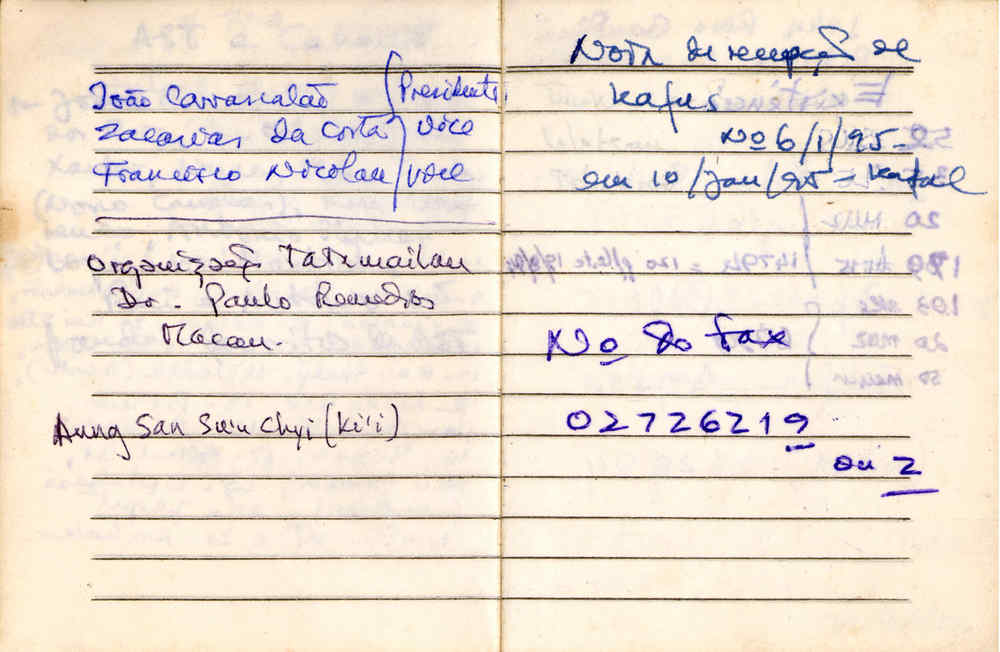 João Carrascalão Presidente
Zacarias da Costa Vice
Francisco Nicolau Vice
Organização Tatamailau
Dr. Paulo Remédios
Macau.
Aung San Su'u Chyi (Ki'i)
Nota de recepção de
Kafus
No 6/1/95 -
em 10/Jan/95 =
No do fax
02726219
ou 2